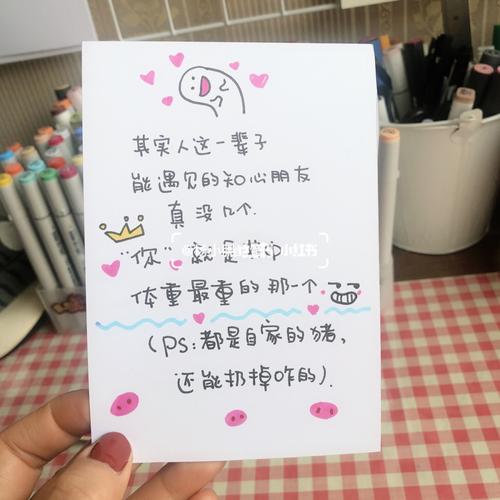 其实人这一辈子
能遇见的知心朋友
真没几个.
"你" 就是
体重最重的那一个
(PS:都是自家的猪,
还能扔掉咋的).
小红书